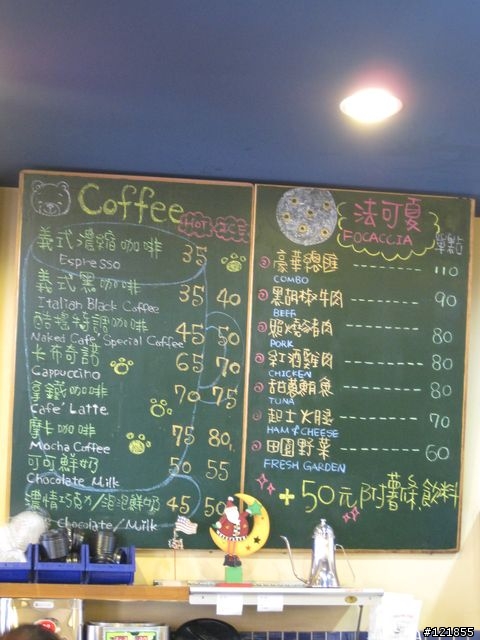 Coffee HOT ICE
義式濃縮咖啡 35
Espresso
義式黑咖啡 35 40
Italian Black Coffee
酷憶特調咖啡 45 50
Naked Cafe' Special Coffee
卡布奇諾 65 70
Cappuccino
拿鐵咖啡 70 75
Cafe' Latte
摩卡咖啡 75 80
Mocha Coffee
可可鮮奶 50 55
Chocolate Milk
濃情巧克力/泡泡鮮奶 45 50
Chocolate/Milk
法可夏
FOCACCIA
單點
豪華總匯 110
COMBO
黑胡椒牛肉 90
BEEF
照燒豬肉 80
PORK
紅酒雞肉 80
CHICKEN
甜蔥鮪魚 80
TUNA
起士火腿 70
HAM & CHEESE
田園野菜 60
FRESH GARDEN
+50元附薯條,飲料
#121855